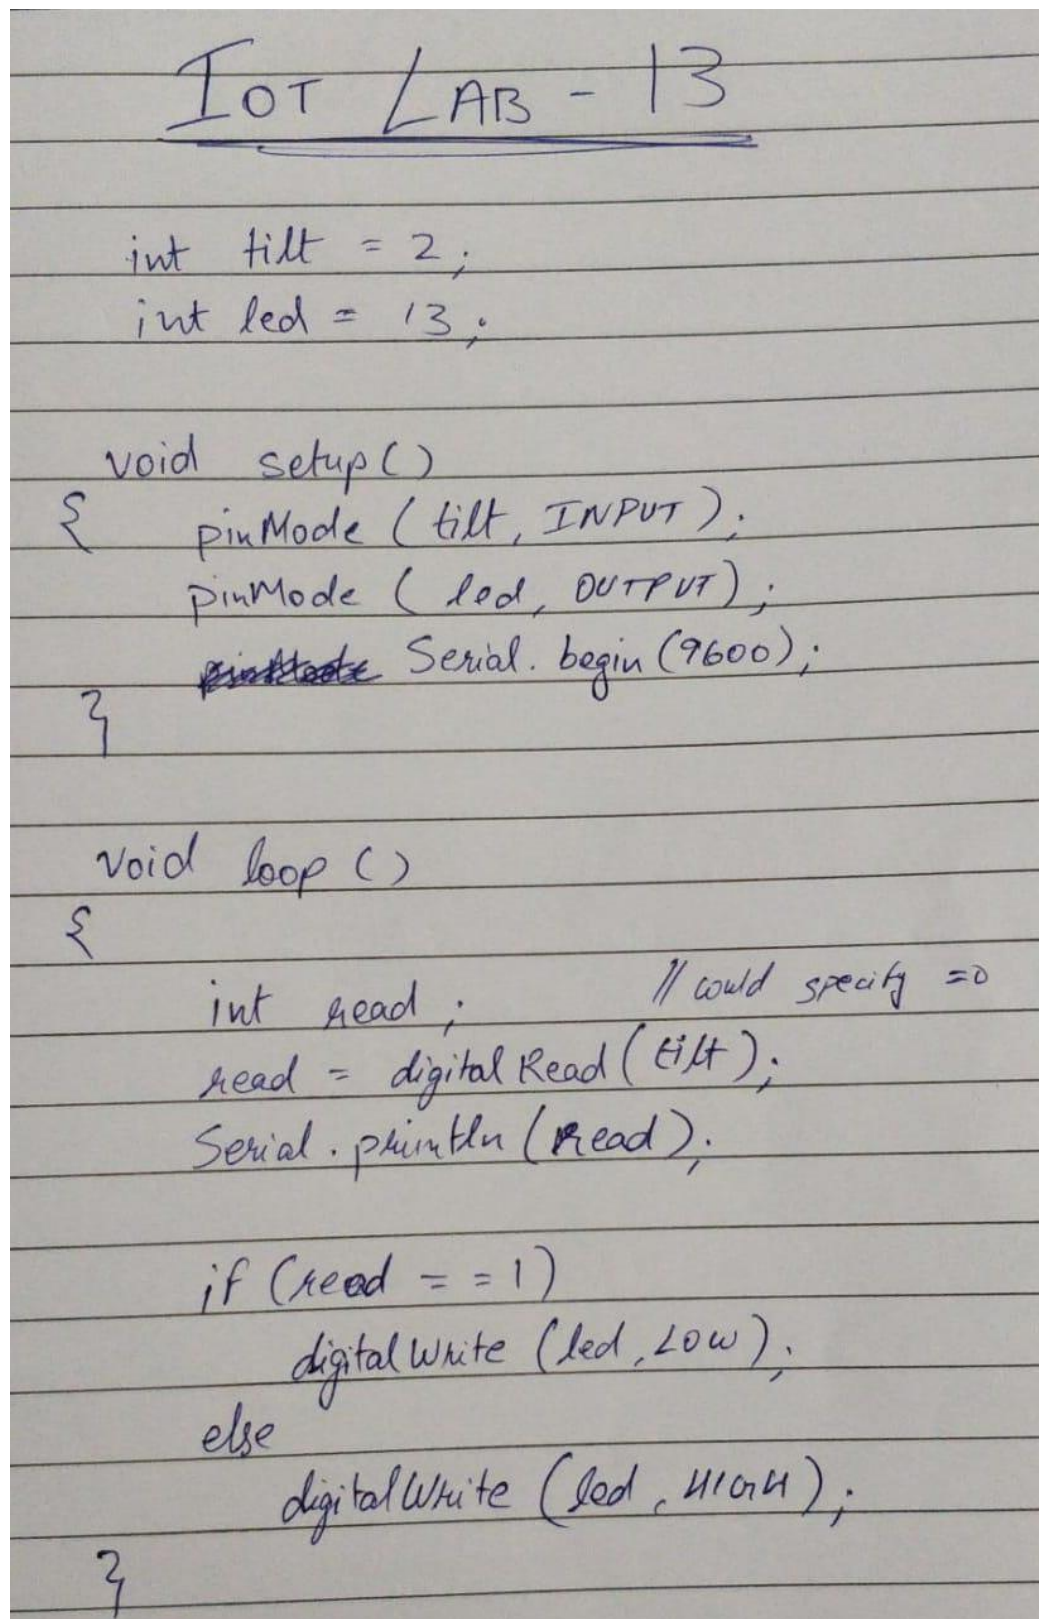 IOT LAB - 13
int tilt = 2;
int led = 13;
void setup()
{ pinMode (tilt, INPUT);
pinMode ( led, OUTPUT);
Serial. begin (9600);
}
void loop ()
{
int read ; // could specify =0
read = digital Read (tilt);
Serial . println (read);
if (read = = 1)
digital Write (led, LOW);
else
digital Write (led, HIGH);
}